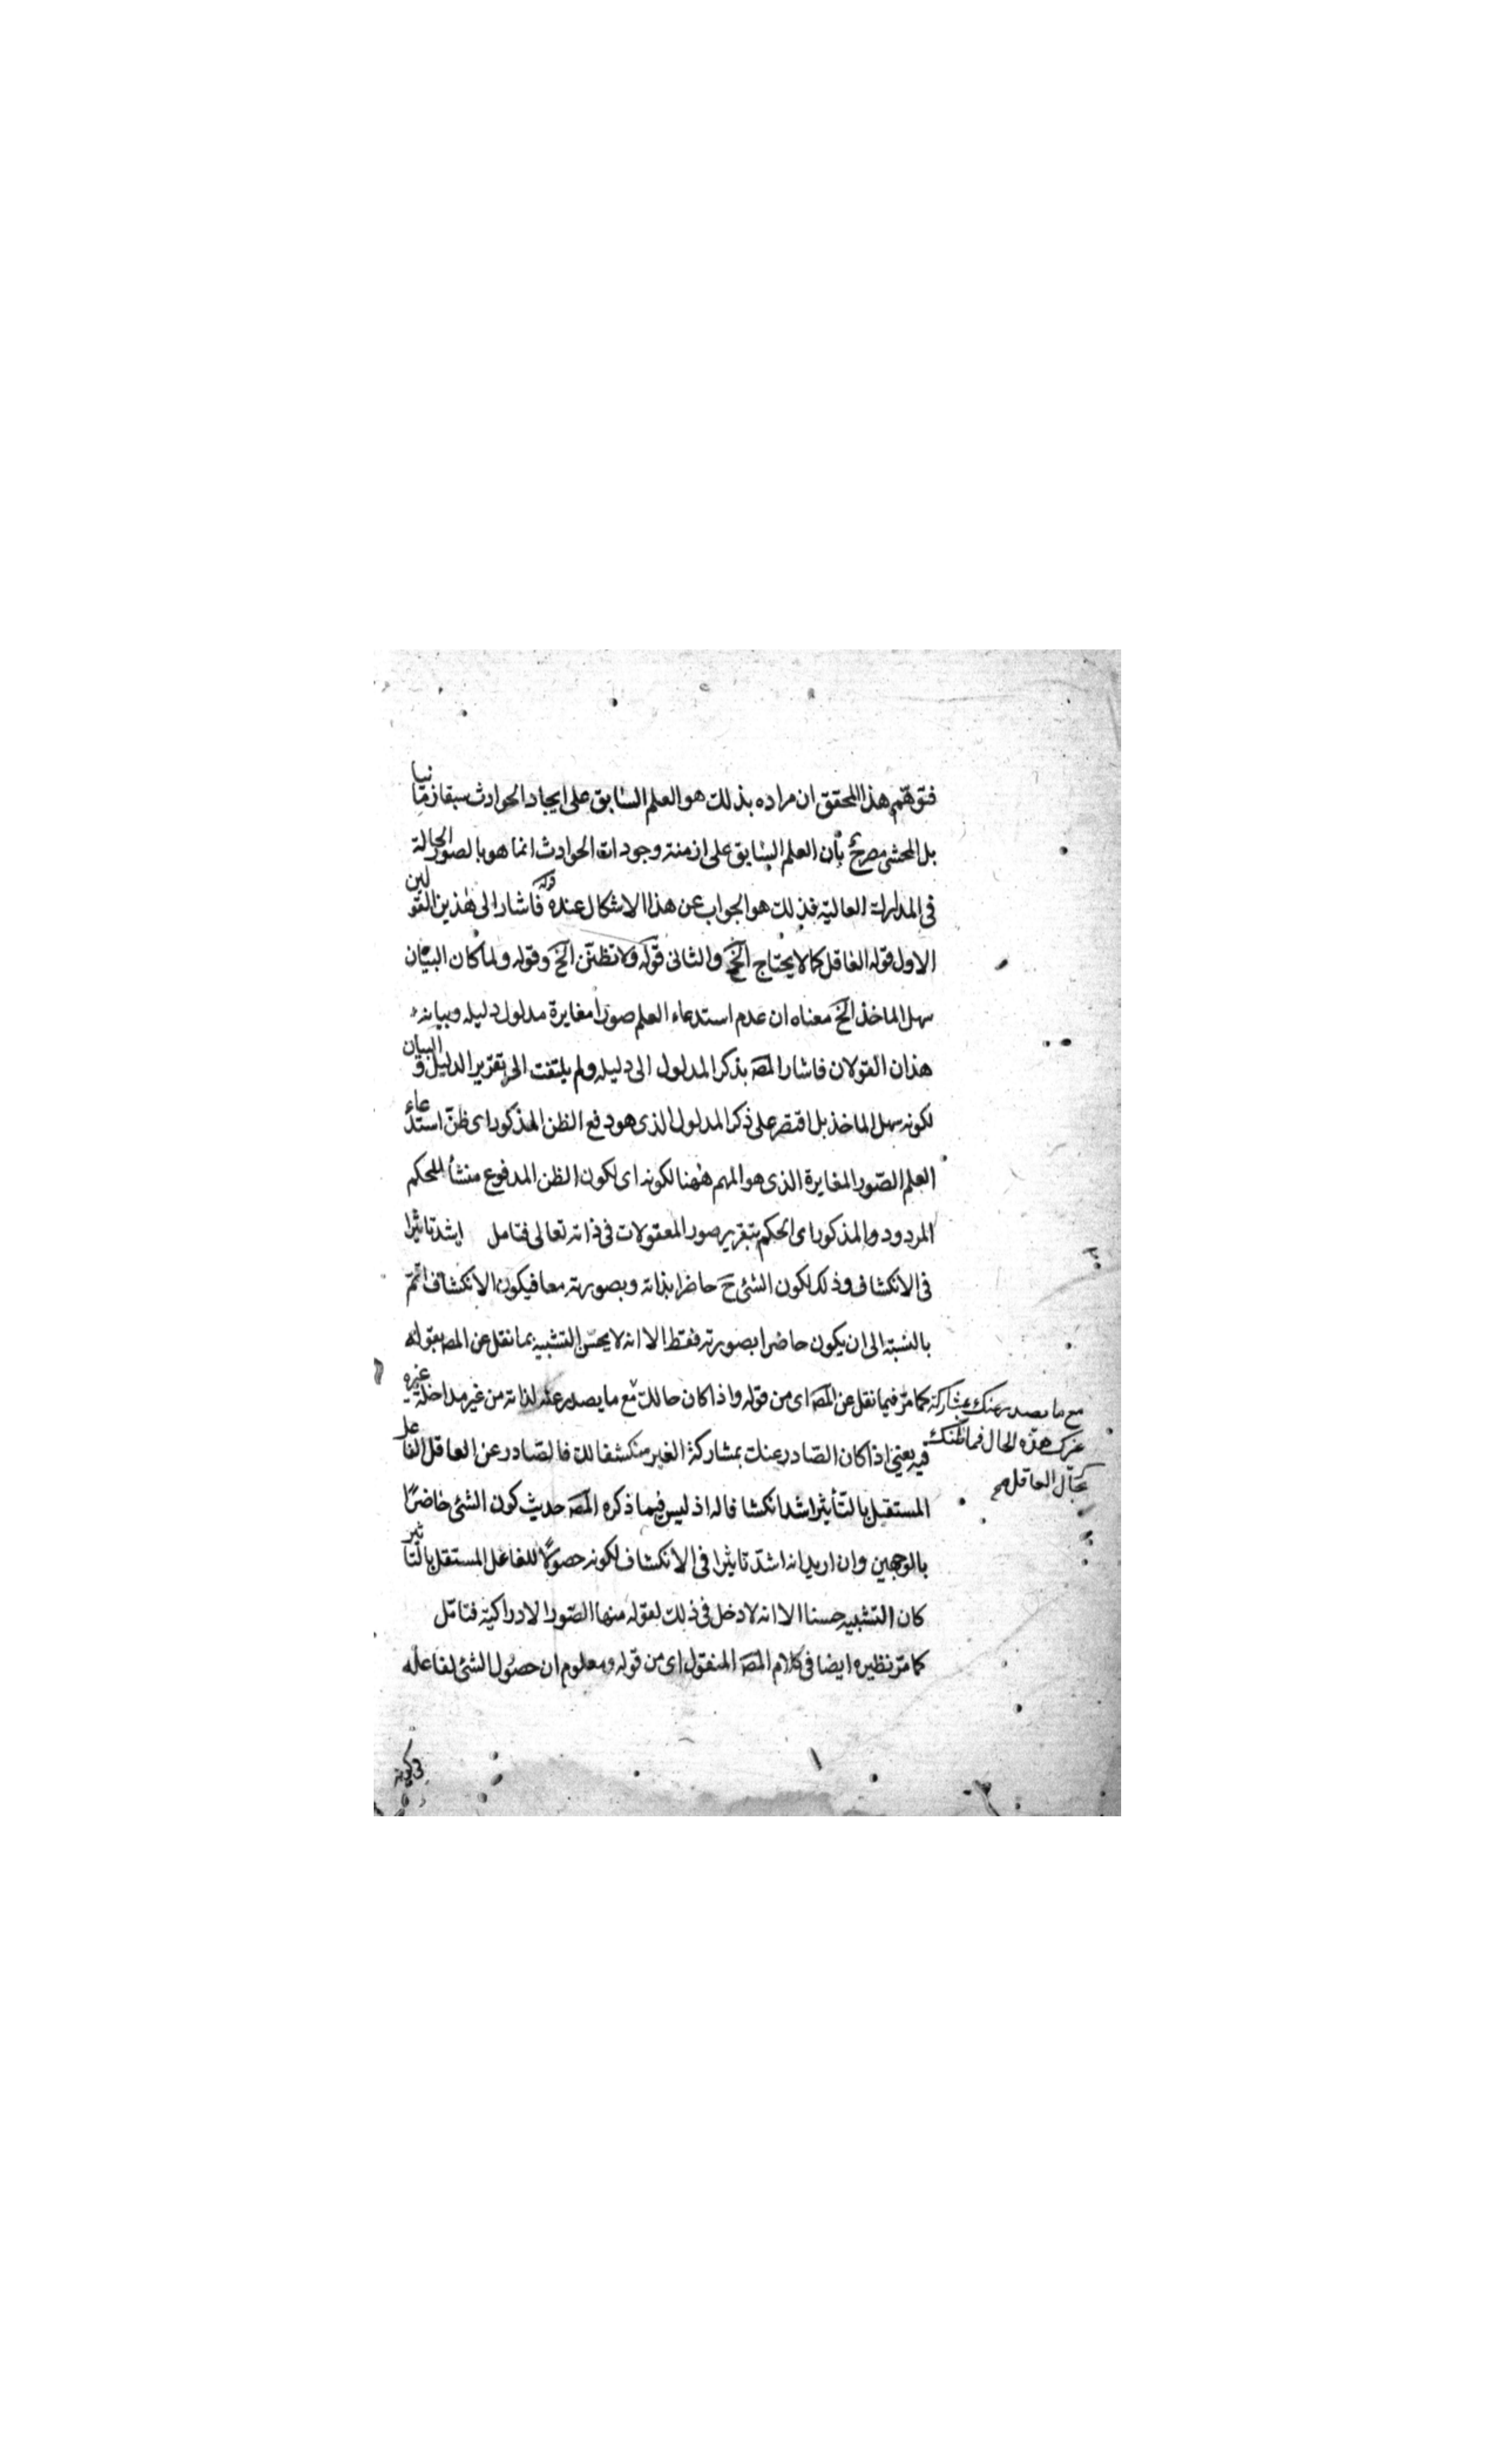 فتوهّم هذا المحقق ان مراده بذلك هو العلم السابق على ايجاد الحوادث سبقا زمانيا
بل المحشى مصرح بأن العلم السابق على ازمنة وجودات الحوادث انما هو بالصور الحالة
فى المدارك العالية فذلك هو الجواب عن هذا الاشكال عنده قوله فاشار الى هذين القولين
الاول قوله العاقل كما لا يحتاج الخ والثانى قوله ولا تظنّن الخ وقوله ولما كان البيان
سهل الماخذ الخ معناه ان عدم استدعاء العلم صورا مغايرة مدلول دليله وبيانه
هذان القولان فاشار المصـ بذكر المدلول الى دليله ولم يلتفت الى تقرير الدليل و البيان
لكونه سهل الماخذ بل اقتصر على ذكر المدلول الذى هو دفع الظن المذكور اى ظنّ استدعاء
العلم الصّور المغايرة الذى هو المهم ههنا لكونه اى لكون الظن المدفوع منشأ للحكم
المردود والمذكور اى الحكم بتقرير صور المعقولات فى ذاته تعالى فتامل اشد تاثيرا
فى الانكشاف وذلك لكون الشئ ح حاضرا بذاته وبصورته معا فيكون الانكشاف اتمّ
بالنسبة الى ان يكون حاضرا بصورته فقط الا انه لا يحسن التشبيه بما نقل عن المصـ بقوله
كما مرّ فيما نقل عن المصـ اى من قوله واذا كان حالك مع ما يصدر عنه لذاته من غير مداخلة غيره
فيه يعنى اذا كان الصّادر عنك بمشاركة الغير منكشفا لك فالصّادر عن العاقل الفاعل
المستقبل بالتأثير اشد انكشافا له اذ ليس فيما ذكره المصـ حديث كون الشئ حاضرًا
بالوجهين وان اريد انه اشدّ تاثيرا فى الانكشاف لكونه حصولًا للفاعل المستقل بالتاثير
كان التشبيه حسنا الا انه لا دخل فى ذلك لقوله منها الصّور الادراكية فتامّل
كما مرّ نظيره ايضا فى كلام المصـ المنقول اى من قوله ومعلوم ان حصول الشئ لفاعله
مع ما يصدر عنك بمشاركة
غيرك هذه الحال فما ظنك
بحال العاقل صح
فى كونه